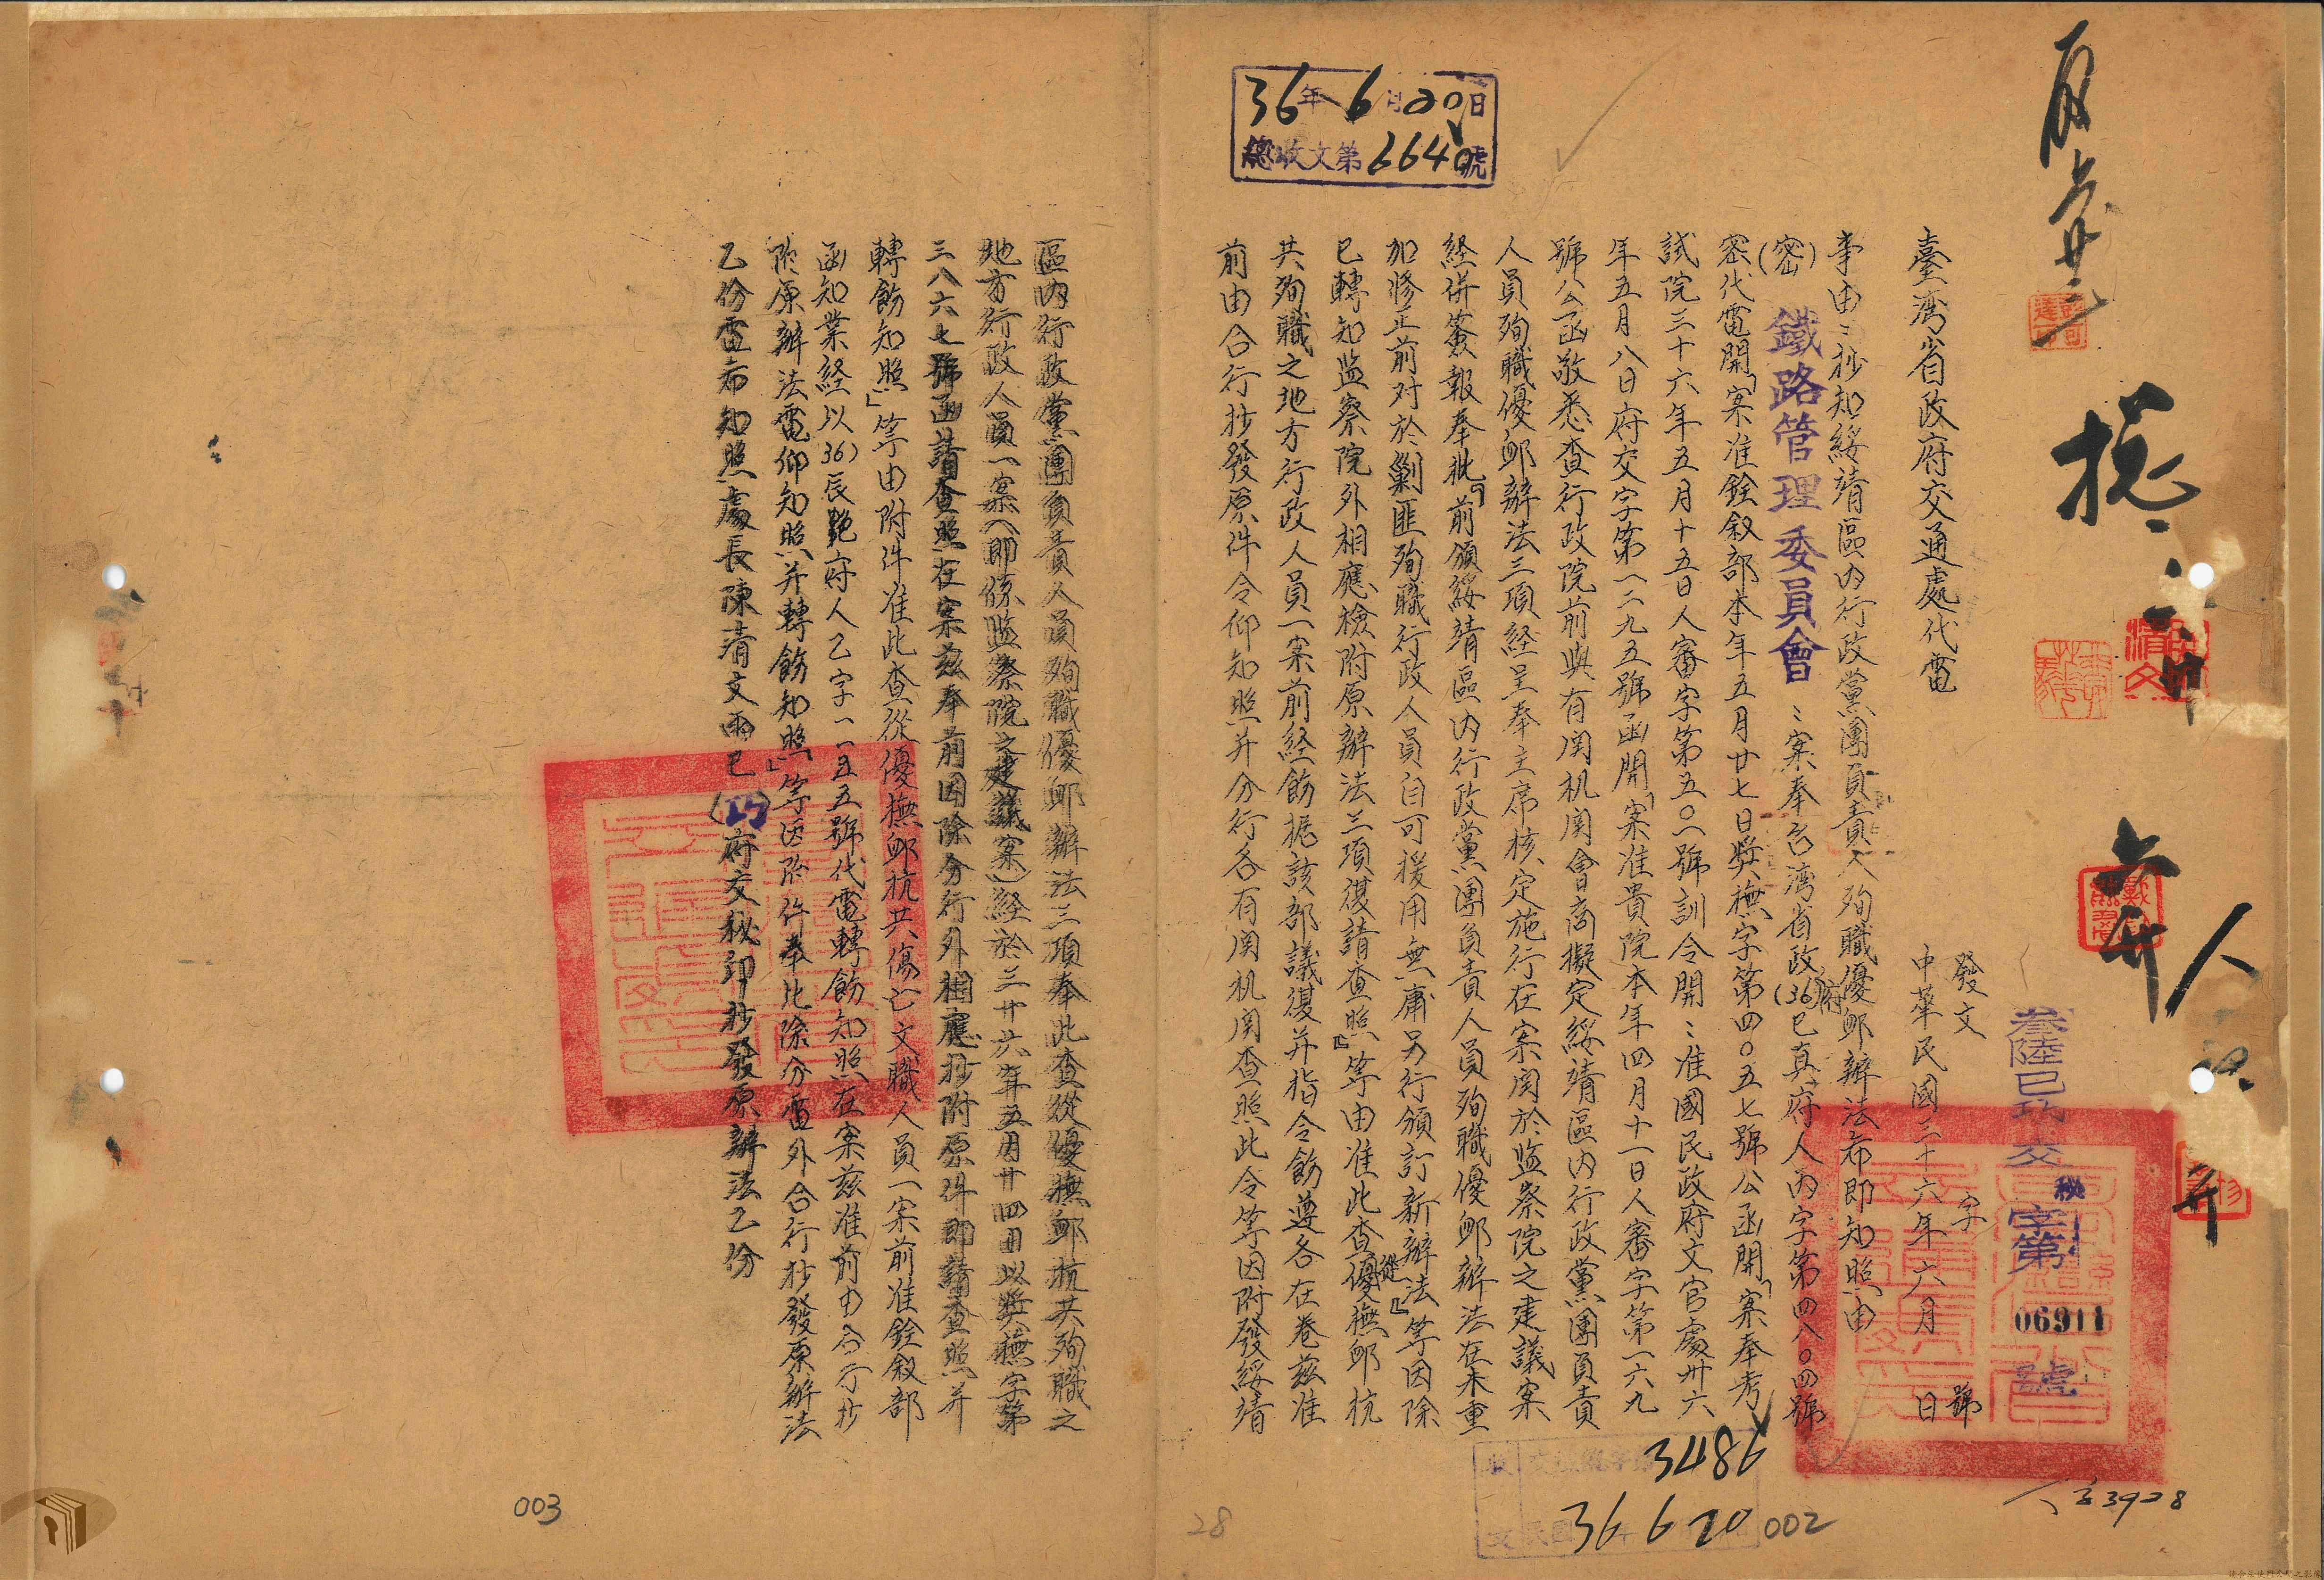 臺灣省政府交通處代電
發文
叁陸巳巧交秘字第06911號
字 號
中華民國三十六年六月 日
事由：抄知綏靖區内行政黨團負責人殉職優卹辦法希即知照由
(密)
鐵路管理委員會：案奉台灣省政府(36)巳真府人丙字第四八〇四號
密代電開「案准銓叙部本年五月廿七日奬撫字第四〇五七號公函開「案奉考
試院三十六年五月十五日人審字第五〇一號訓令開：准國民政府文官處卅六
年五月八日府交字第一二九五號函開「案准貴院本年四月十一日人審字第一六九
號公函敬悉查行政院前與有関机関會商擬定綏靖區内行政黨團負責
人員殉職優卹辦法三項経呈奉主席核定施行在案関於监察院之建議案
経併簽報奉批「前頒綏靖區内行政黨團負責人員殉職優卹辦法在未重
加修正前对於剿匪殉職行政人員自可援用無庸另行頒訂新辦法』等因除
已轉知监察院外相應檢附原辦法三項復請查照』等由准此查從優撫卹抗
共殉職之地方行政人員一案前経飭據該部議復并指令飭遵各在卷兹准
前由合行抄發原件令仰知照并分行各有関机関查照此令等因附發綏靖
區内行政黨團負責人員殉職優卹辦法三項奉此查從優撫卹抗共殉職之
地方行政人員一案(即係监察院之建議案)経於三十六年五月廿四日以奬撫字第
三八六七號函請查照在案兹奉前因除分行外相應抄附原件即請查照并
轉飭知照」等由附件准此查從優撫卹抗共傷亡文職人員一案前准銓叙部
函知業経以36)辰艷府人乙字一一五五號代電轉飭知照在案兹准前由合行抄
附原辦法電仰知照并轉飭知照」等因附件奉此除分電外合行抄發原辦法
乙份電希知照處長陳清文雨巳(巧)府交秘印抄發原辦法乙份
36年6月20日
總收文第6640號
3486
36 6 20
002
28
003
33928